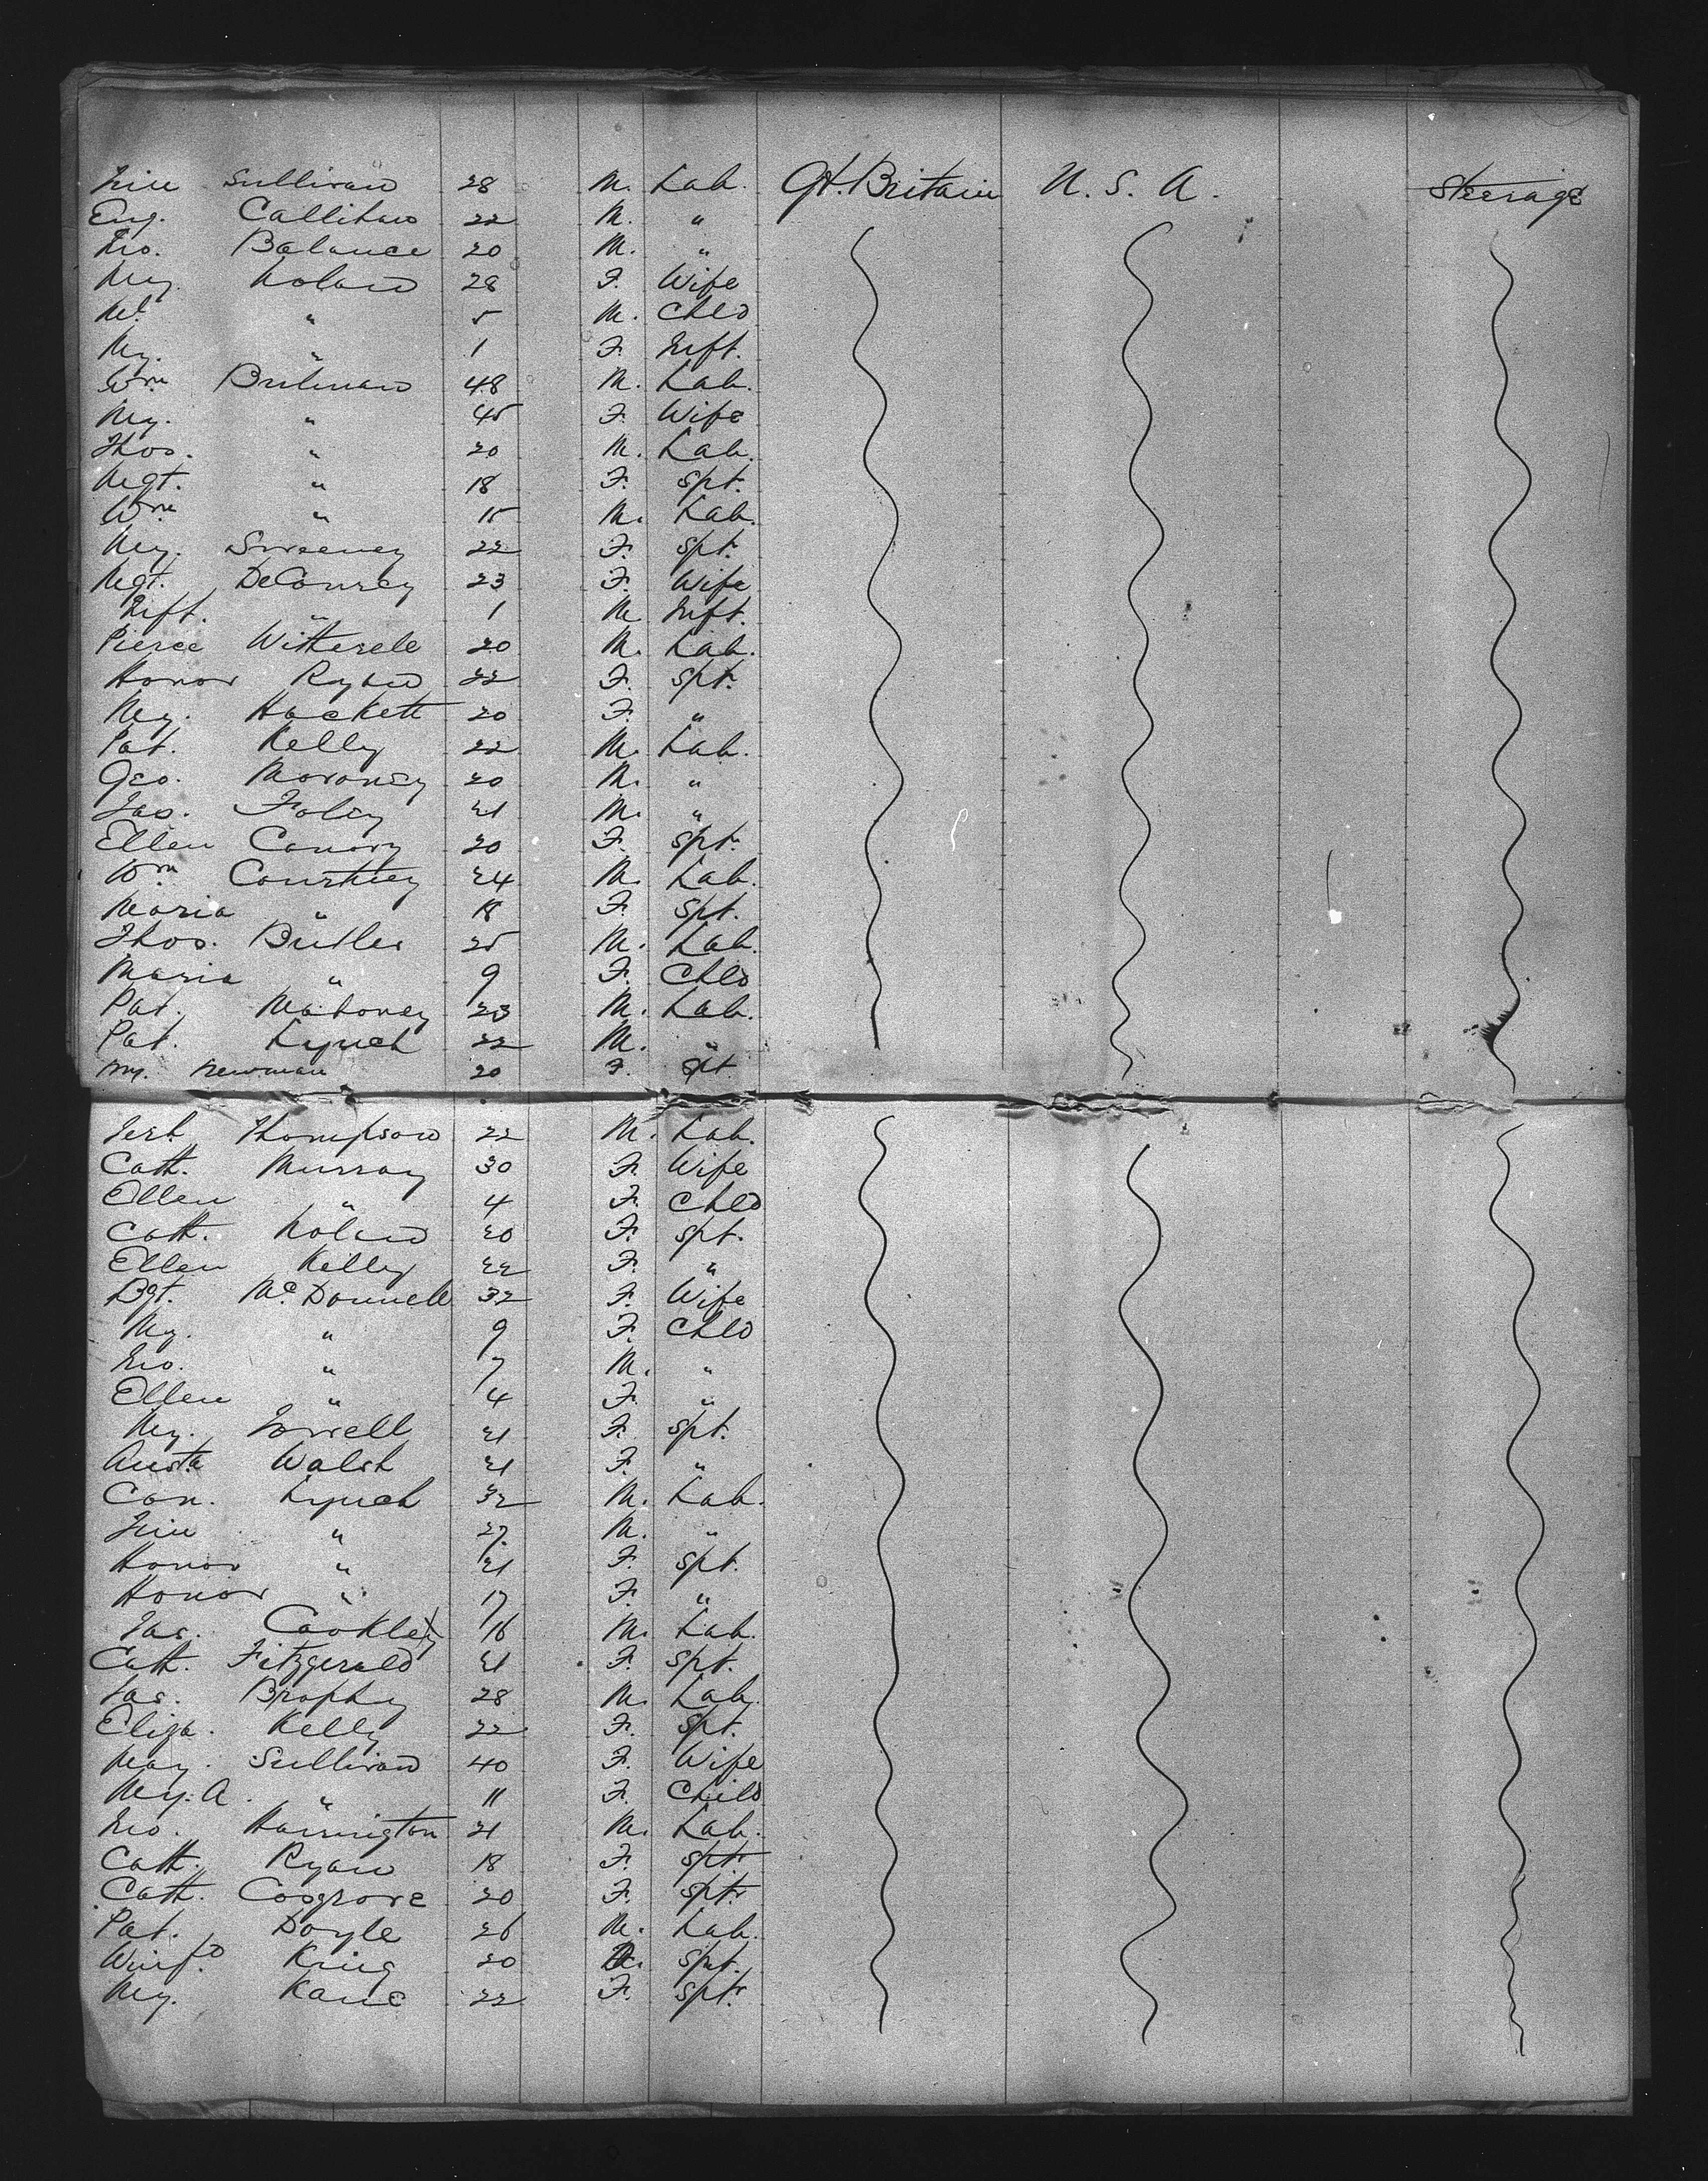 Sullivan 28 M. Lab. Gt. Britain U. S. A. Steerage
Eug. Callihan 22 M. "
Jno. Balance 20 M. "
My. Noland 28 F. Wife
Ml. " 5 M. Chld
My. " 1 F. Inft.
Wm 48 M. Lab.
My. " 45 F. Wife
Thos. " 20 M. Lab.
Mgt. " 18 F. Spt.
Wm " 15 M. Lab.
My. Sweeney 22 F. Spt.
Mgt. DeCoursey 23 F. Wife
Inft. " 1 M Inft.
Pierce 20 M. Lab.
Honor Ryan 22 F. Spt.
My. Hackett 20 F. "
Pat. Kelly 22 M. Lab.
Geo. Moroney 20 M. "
Jas. Foley 21 M. "
Ellen Conary 20 F. Spt.
Wm Courtney 24 M. Lab.
Maria " 18 F. Spt.
Thos. Butler 25 M. Lab.
Maria " 9 F. Chld
Pat. Mahoney 23 M. Lab.
Pat. Lynch 22 M. "
My. Newman 20 F. Spt
Thompson 22 M. Lab.
Cath. Murray 30 F. Wife
Ellen " 4 F. Chld
Cath. Noland 20 F. Spt.
Ellen Kelly 22 F. "
Bgt. McDonnell 32 F. Wife
My. " 9 F. Chld
Jno. " 7 M. "
Ellen " 4 F. "
My. 21 F. Spt.
Walsh 21 F. "
Con. Lynch 32 M. Lab.
" 27 M. "
Honor " 21 F. Spt.
Honor " 17 F. "
Jas. Cookley 16 M. Lab.
Cath. Fitzgerald 21 F. Spt.
Jas. Brophy 28 M. Lab.
Eliza. Kelly 22 F. Spt.
May. Sullivan 40 F. Wife
My. A. " 11 F. Child
Jno. Harrington 21 M. Lab.
Cath. Ryan 18 F. Spt
Cath. Cosgrove 20 F. Spt.
Pat. Doyle 26 M. Lab.
Winfd. King 20 Spt.
My. Kane 22 F. Spt.